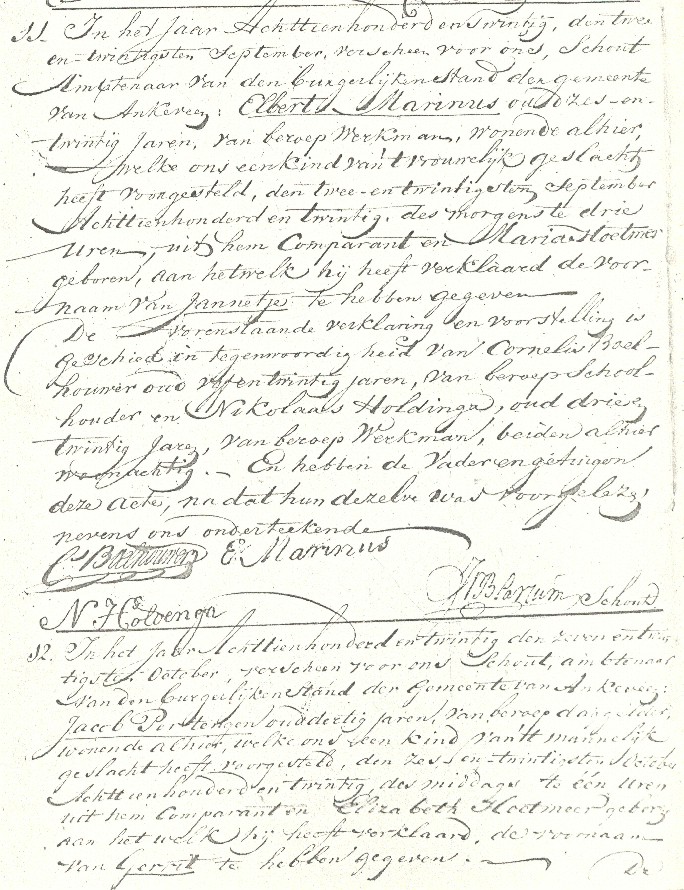 11. In het Jaar Achttienhonderd en twintig, den twee
en-twintigsten September, verscheen voor ons, Schout
Amptenaar van den burgerlijken stand der gemeente
van Ankeveen: Elbert Marinus oud zes-en-
twintig Jaren, van beroep Werkman, wonende alhier,
welke ons een kind van 't vrouwelijk geslacht
heeft voorgesteld, den twee-en twintigsten September
Achttienhonderd en twintig, des morgens te drie
Uren, uit hem Comparant en Maria
geboren, aan hetwelk hij heeft verklaard de voor-
naam van Jannetje te hebben gegeven
De vorenstaande verklaring en voorstelling is
geschied in tegenwoordigheid van Cornelis Boel-
houwer oud vyf en twintig jaren, van beroep School-
houder en Nikolaas Holdinga, oud drie
twintig Jaren, van beroep Werkman, beiden alhier
woonachtig. - En hebben de Vader en getuigen
deze acte, na dat hun dezelve was voorgelezen,
nevens ons onderteekende
C Boelhouwer E. Marinus
Schout
N. Holdenga
12. In het Jaar Achttienhonderd en twintig den zeven en twin
tigsten October, verscheen voor ons Schout, ambtenaar
van den burgerlijken stand der Gemeente van Ankeveen:
Jacob oud dertig jaren, van beroep daggelder,
wonende alhier, welke ons een kind van 't mannelijk
geslacht heeft voorgesteld, den zes-en-twintigsten October
Achttienhonderd en twintig, des middags te één uren
uit hem Comparant en Elizabeth geboren
aan het welk hij heeft verklaard, de voornaam
van Gerrit te hebben gegeven. -
De